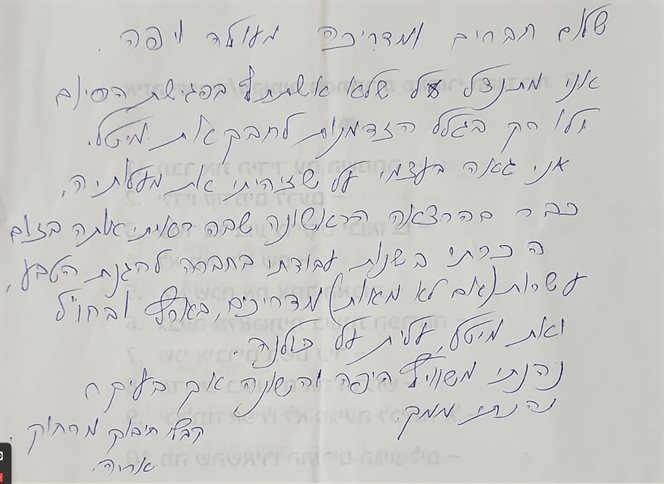 שלום חברים ומדריכה מעולה ויפה.
אני מתנצל על שלא אשתתף בפגישת הסיום
ולו רק בגלל הזדמנות לחבק את מיטל.
אני גאה בעצמי על שזיהיתי את מעלותיה,
כבר בהרצאה הראשונה שבה ראיתי אותה בזום
הכרתי בשנות עבודתי בחברה להגנת הטבע,
עשרות (אם לא מאות) מדריכים, בארץ ובחו״ל
ואת מיטל, עלית על כולנה.
נהנתי משוויץ היפה והשונה אך בעיקר
נהנתי ממך
קבלי חיבוק מרחוק.
אריה.